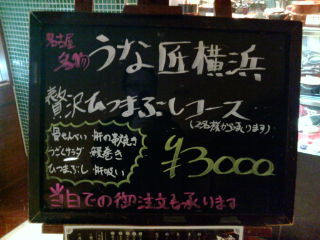 名古屋
名物 うな匠横浜
贅沢ひつまぶしコース
(2名様から承ります)
骨せんべい 肝の串焼き
うざくサラダ 鰻巻き
ひつまぶし 肝吸い
¥3000
当日での御注文も承ります